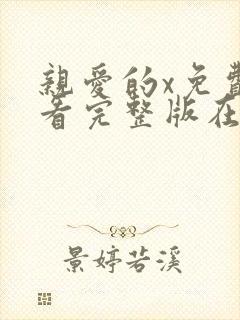 親愛的x免費
看完整版在
景婷若溪